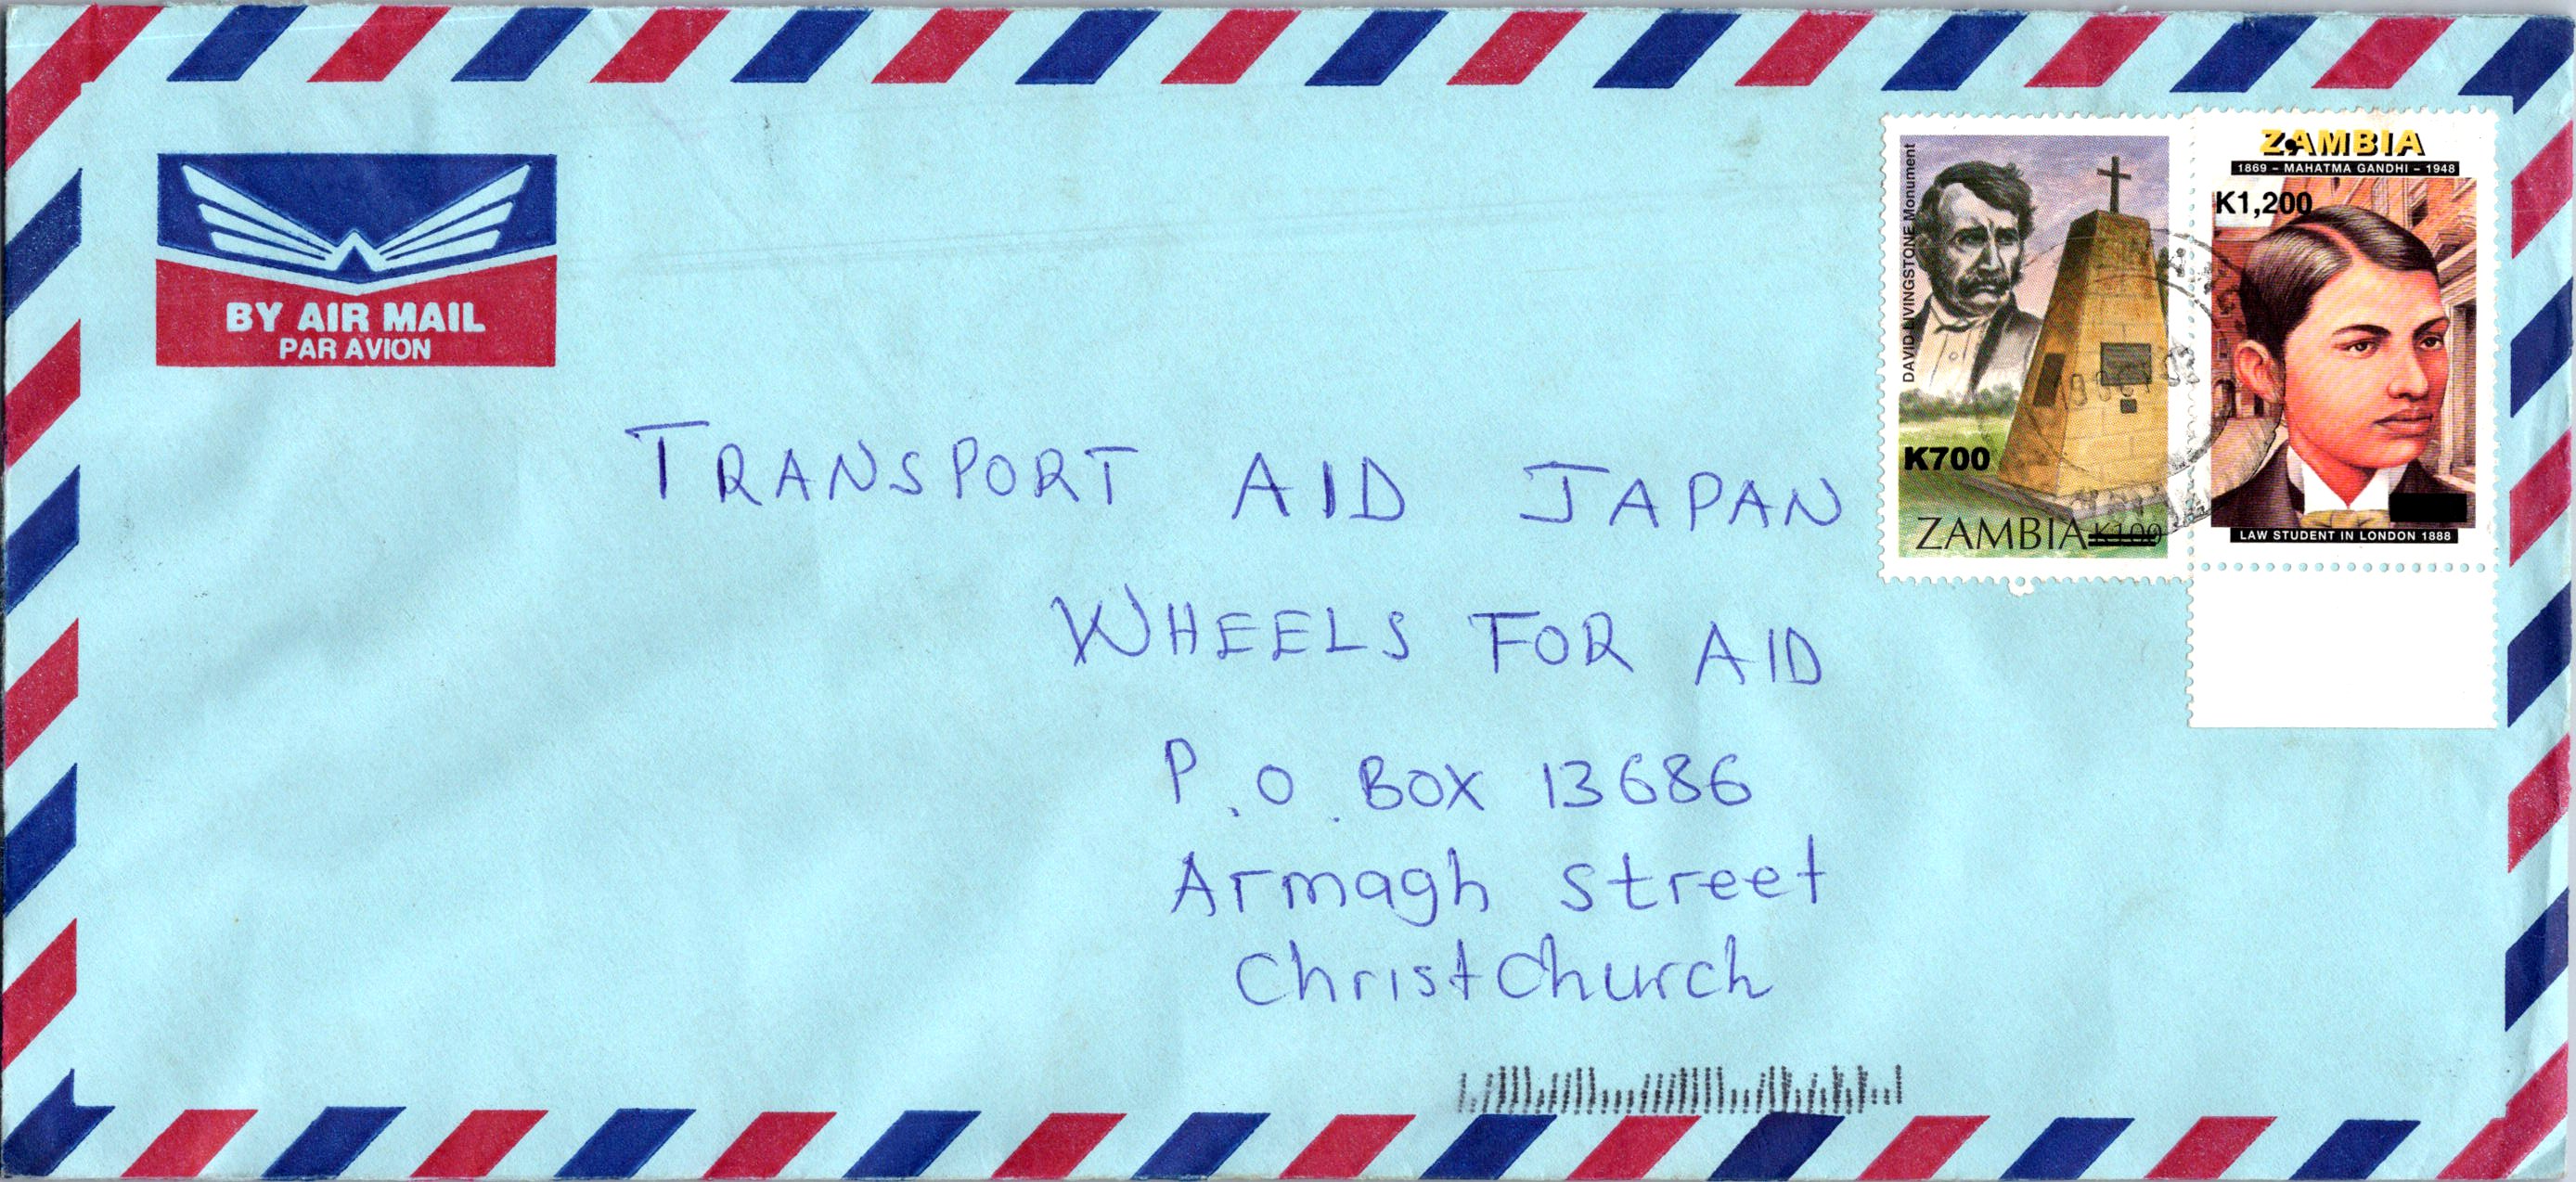 BY AIR MAIL
PAR AVION
DAVID LIVINGSTONE Monument
K700
ZAMBIA K100
ZAMBIA
1869 – MAHATMA GANDHI – 1948
K1,200
LAW STUDENT IN LONDON 1888
TRANSPORT AID JAPAN
WHEELS FOR AID
P.O. BOX 13686
Armagh street
Christchurch